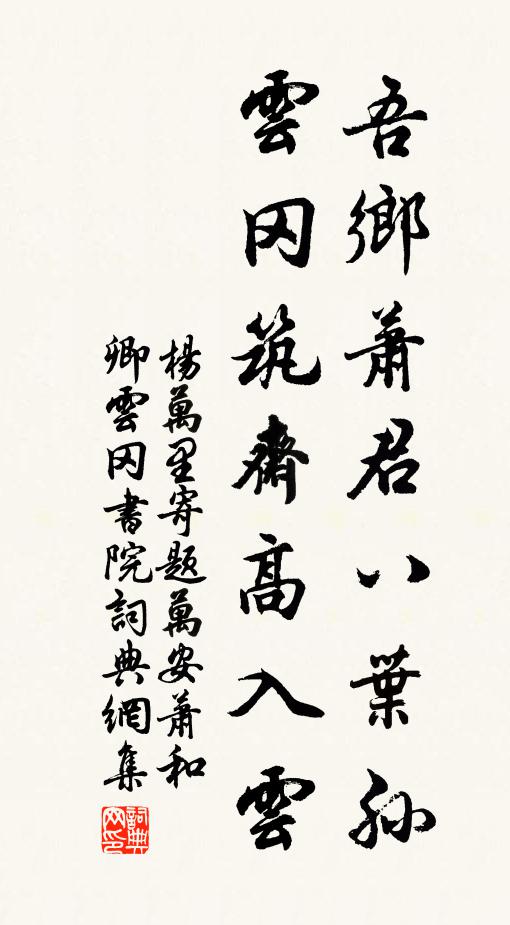 吾鄉蕭君八葉孫
雲冈筑齋高入雲
楊萬里寄題萬安蕭和
卿雲冈書院詞典網集
詞典
网印